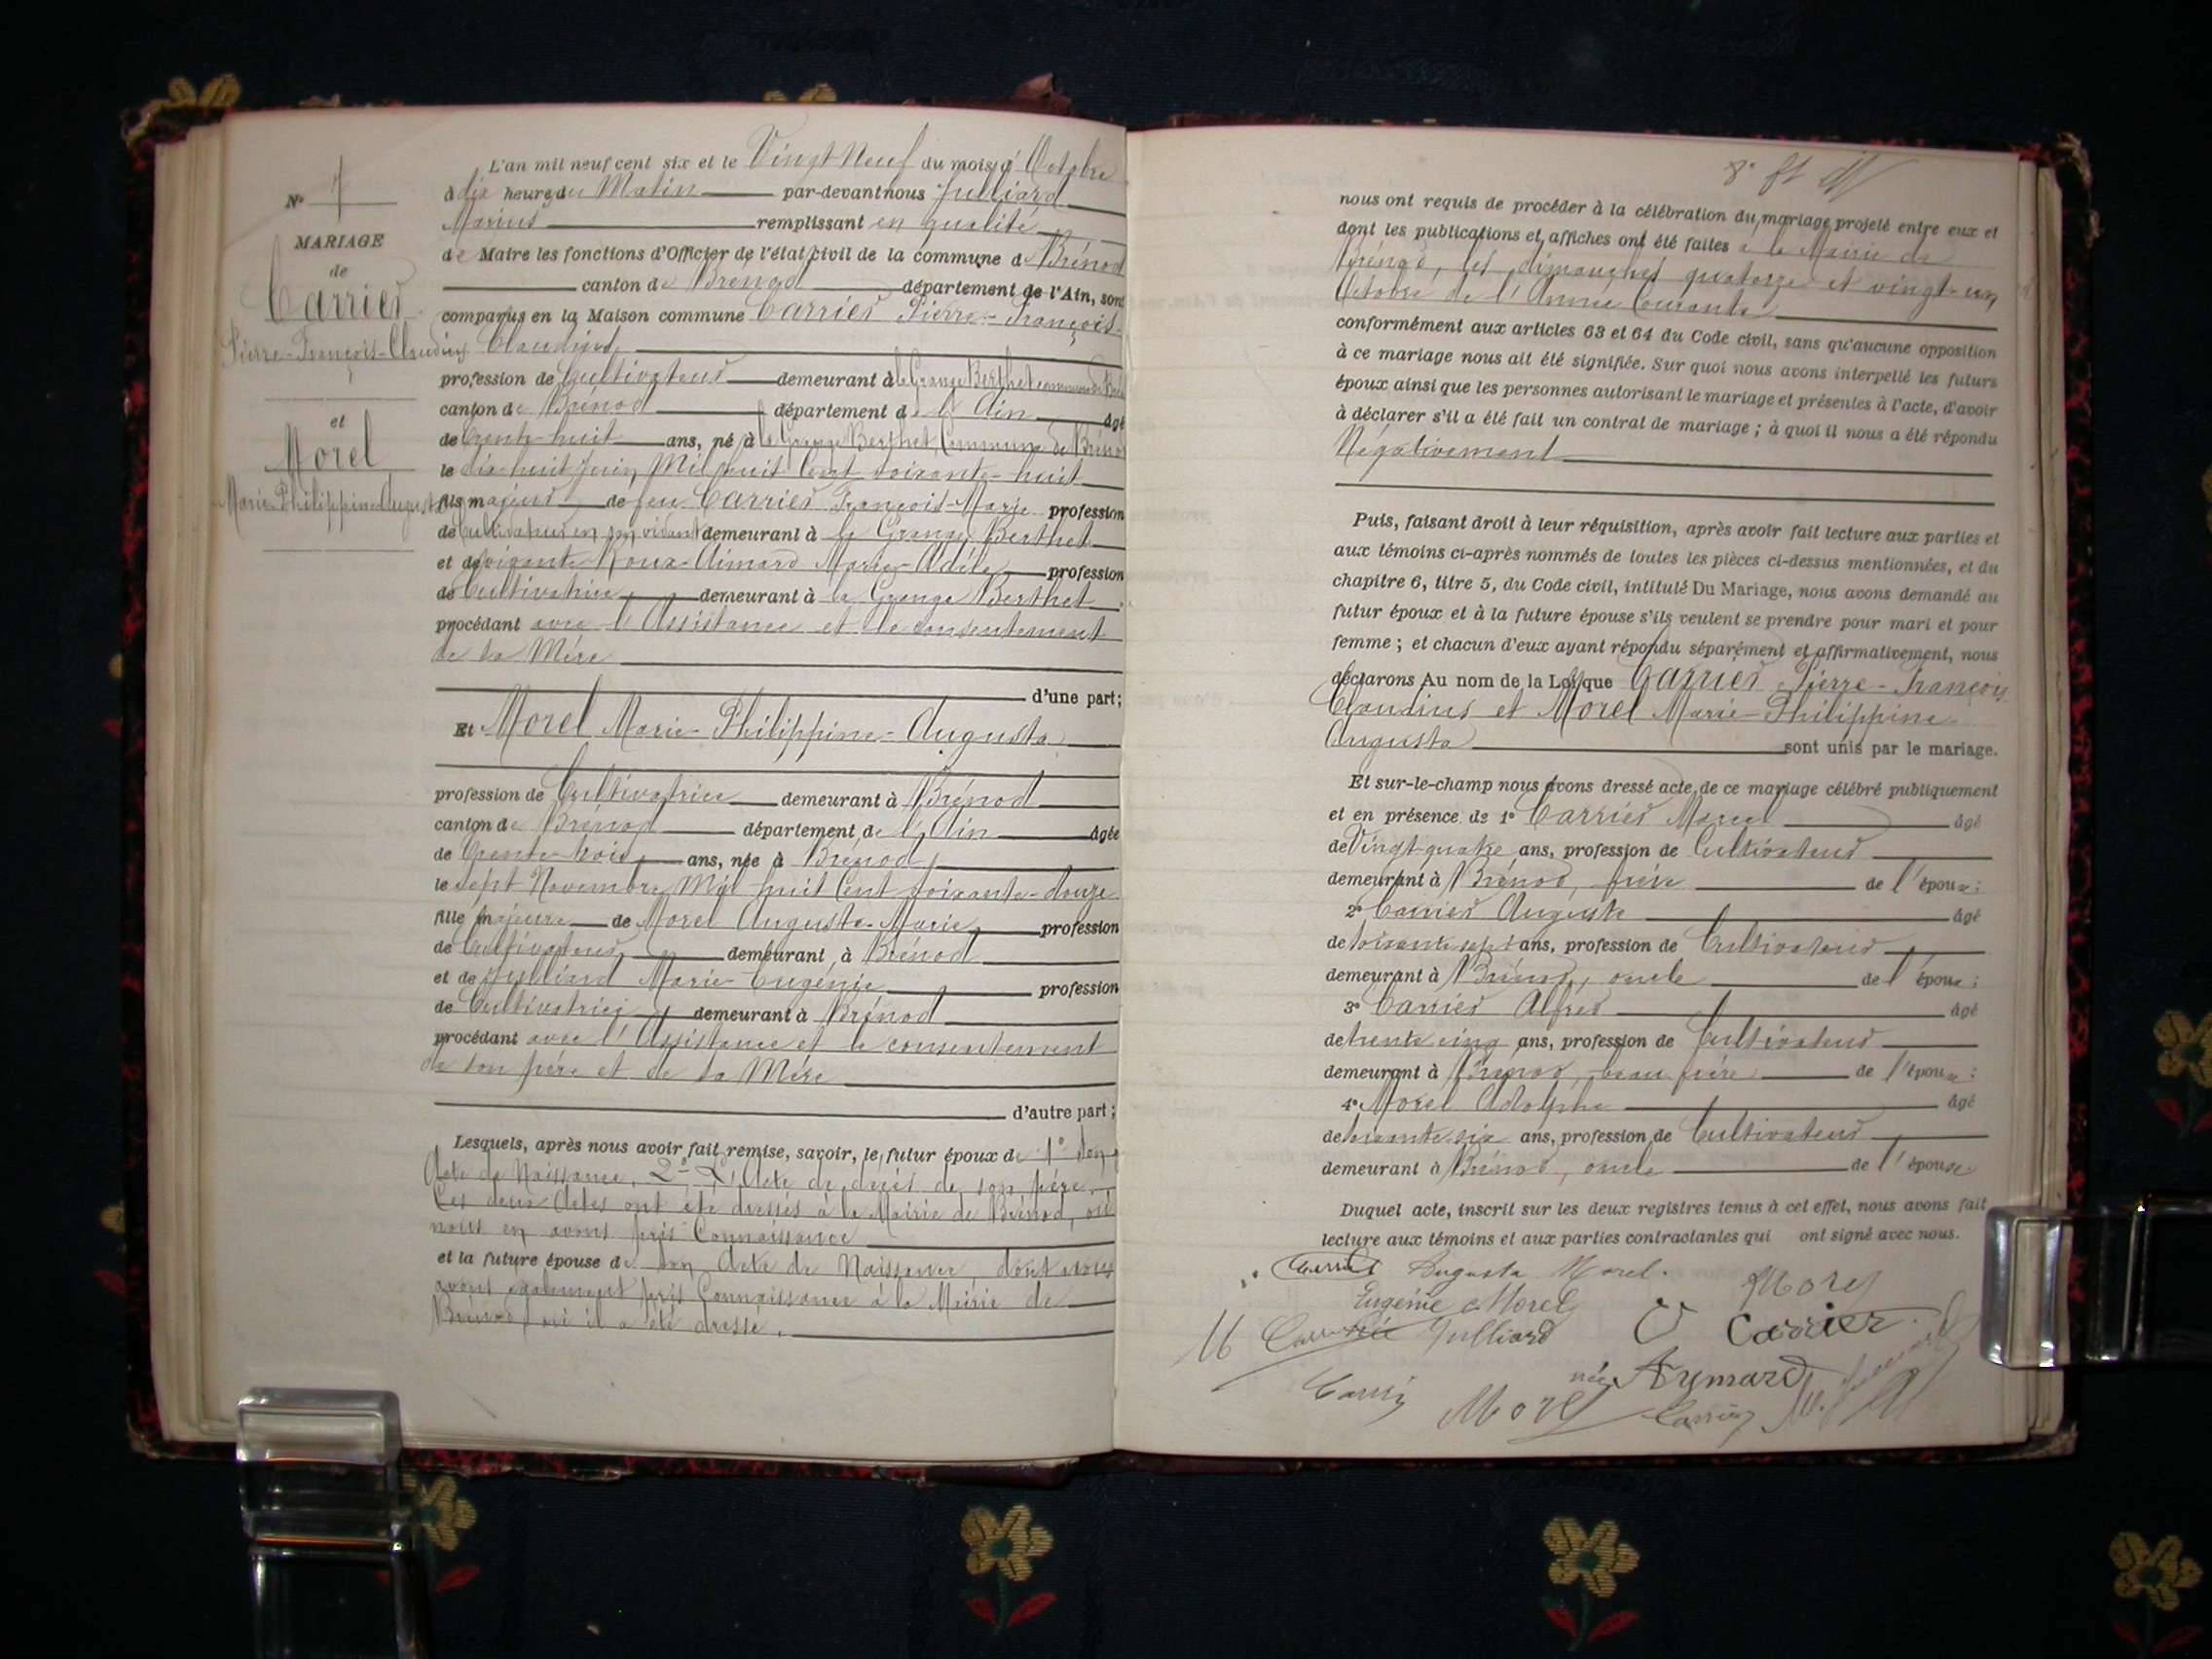 L'an mil neuf cent six et le Vingt Neuf du mois d' Octobre
à dix heures du Matin par-devant nous Julliard
Marius remplissant en qualité
de Maire les fonctions d'Officier de l'état civil de la commune de Brénod
canton de Brénod département de l'Ain, sont
comparus en la Maison commune Carrier Pierre-François-
Claudius
profession de Cultivateur demeurant à la Grange Berthet commune de
canton de Brénod département de l'Ain âgé
de trente-huit ans, né à la Grange Berthet, Commune de Brénod
le dix-huit Juin Mil huit Cent soixante-huit
fils majeur de feu Carrier François-Marie profession
de Cultivateur en son vivant demeurant à la Grange Berthet
et de vivante Roux-Aimard Marie-Adèle profession
de Cultivatrice demeurant à la Grange Berthet
procédant avec l'Assistance et le consentement
de sa Mère
d'une part;
Et Morel Marie-Philippine-Augusta
profession de Cultivatrice demeurant à Brénod
canton de Brénod département de l'Ain âgée
de trente-trois ans, née à Brénod
le sept Novembre Mil-huit Cent soixante-douze
fille majeure de Morel Auguste-Marie profession
de Cultivateur demeurant à Brénod
et de Julliard Marie-Eugénie profession
de Cultivatrice demeurant à Brénod
procédant avec l'Assistance et le consentement
de son père et de sa Mère
d'autre part;
Lesquels, après nous avoir fait remise, savoir, le futur époux de 1° Son
Acte de Naissance, 2° L'Acte de décès de son père.
Ces deux Actes ont été dressés à la Mairie de Brénod, où
nous en avons pris Connaissance
et la future épouse de son Acte de Naissance, dont nous
avons également pris Connaissance à la Mairie de
Brénod où il a été dressé.
N° 7
MARIAGE
de
Carrier
Pierre-François-Claudius
et
Morel
Marie-Philippine-Augusta
nous ont requis de procéder à la célébration du mariage projeté entre eux et
dont les publications et affiches ont été faites à la Mairie de
Brénod, les dimanches quatorze et vingt-un
Octobre de l'Année Courante
conformément aux articles 63 et 64 du Code civil, sans qu'aucune opposition
à ce mariage nous ait été signifiée. Sur quoi nous avons interpellé les futurs
époux ainsi que les personnes autorisant le mariage et présentes à l'acte, d'avoir
à déclarer s'il a été fait un contrat de mariage; à quoi il nous a été répondu
Négativement
Puis, faisant droit à leur réquisition, après avoir fait lecture aux parties et
aux témoins ci-après nommés de toutes les pièces ci-dessus mentionnées, et du
chapitre 6, titre 5, du Code civil, intitulé Du Mariage, nous avons demandé au
futur époux et à la future épouse s'ils veulent se prendre pour mari et pour
femme; et chacun d'eux ayant répondu séparément et affirmativement, nous
déclarons Au nom de la Loi que Carrier Pierre-François
Claudius et Morel Marie-Philippine
Augusta sont unis par le mariage.
Et sur-le-champ nous avons dressé acte de ce mariage célébré publiquement
et en présence de 1° Carrier Marcel âgé
de Vingt-quatre ans, profession de Cultivateur
demeurant à Brénod, frère de l'époux;
2° Carrier Auguste âgé
de soixante sept ans, profession de Cultivateur
demeurant à Brénod, oncle de l'époux;
3° Carrier Alfred âgé
de trente cinq ans, profession de Cultivateur
demeurant à Brénod, beau frère de l'épouse;
4° Morel Adolphe âgé
de soixante six ans, profession de Cultivateur
demeurant à Brénod, oncle de l'épouse
Duquel acte, inscrit sur les deux registres tenus à cet effet, nous avons fait
lecture aux témoins et aux parties contractantes qui ont signé avec nous.
Carrier Augusta Morel. Morel
Eugénie Morel
Julliard V Carrier
née Aymard
Morel Carrier